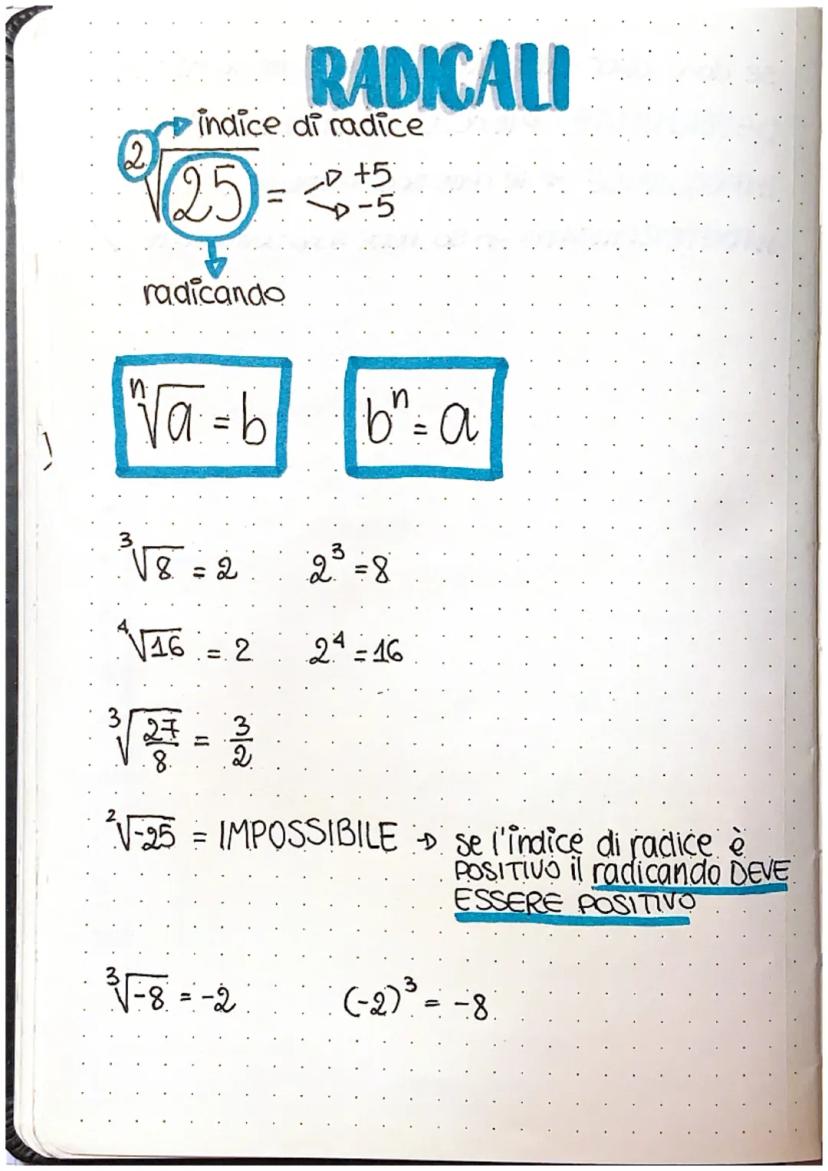 RADICALI
indice di radice
²√25 = +5
-5
radicando
ⁿ√a = b bⁿ = a
³√8 = 2 2³ = 8
⁴√16 = 2 2⁴ = 16
³√27/8 = 3/2
²√-25 = IMPOSSIBILE → se l'indice di radice è
POSITIVO il radicando DEVE
ESSERE POSITIVO
³√-8 = -2 (-2)³ = -8